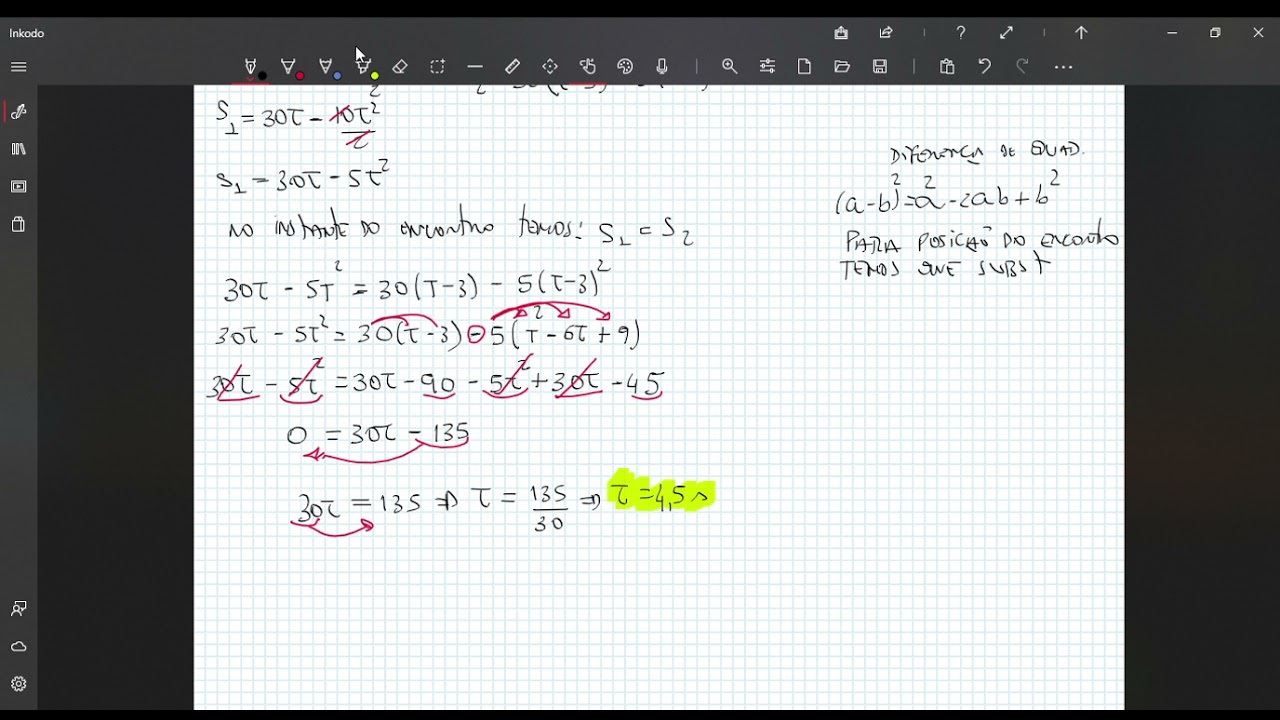 Inkodo
S₁ = 30t - 10t²/2
S₁ = 30t - 5t²
NO INSTANTE DO ENCONTRO TEMOS: S₁ = S₂
30t - 5t² = 30(t-3) - 5(t-3)²
30t - 5t² = 30(t-3) - 5(t² - 6t + 9)
30t - 5t² = 30t - 90 - 5t² + 30t - 45
0 = 30t - 135
30t = 135 ⇒ t = 135/30 ⇒ t = 4,5 s
DIFERENÇA DE QUAD.
(a-b)² = a² - 2ab + b²
PARA POSIÇÃO DO ENCONTO
TEMOS QUE SUBST